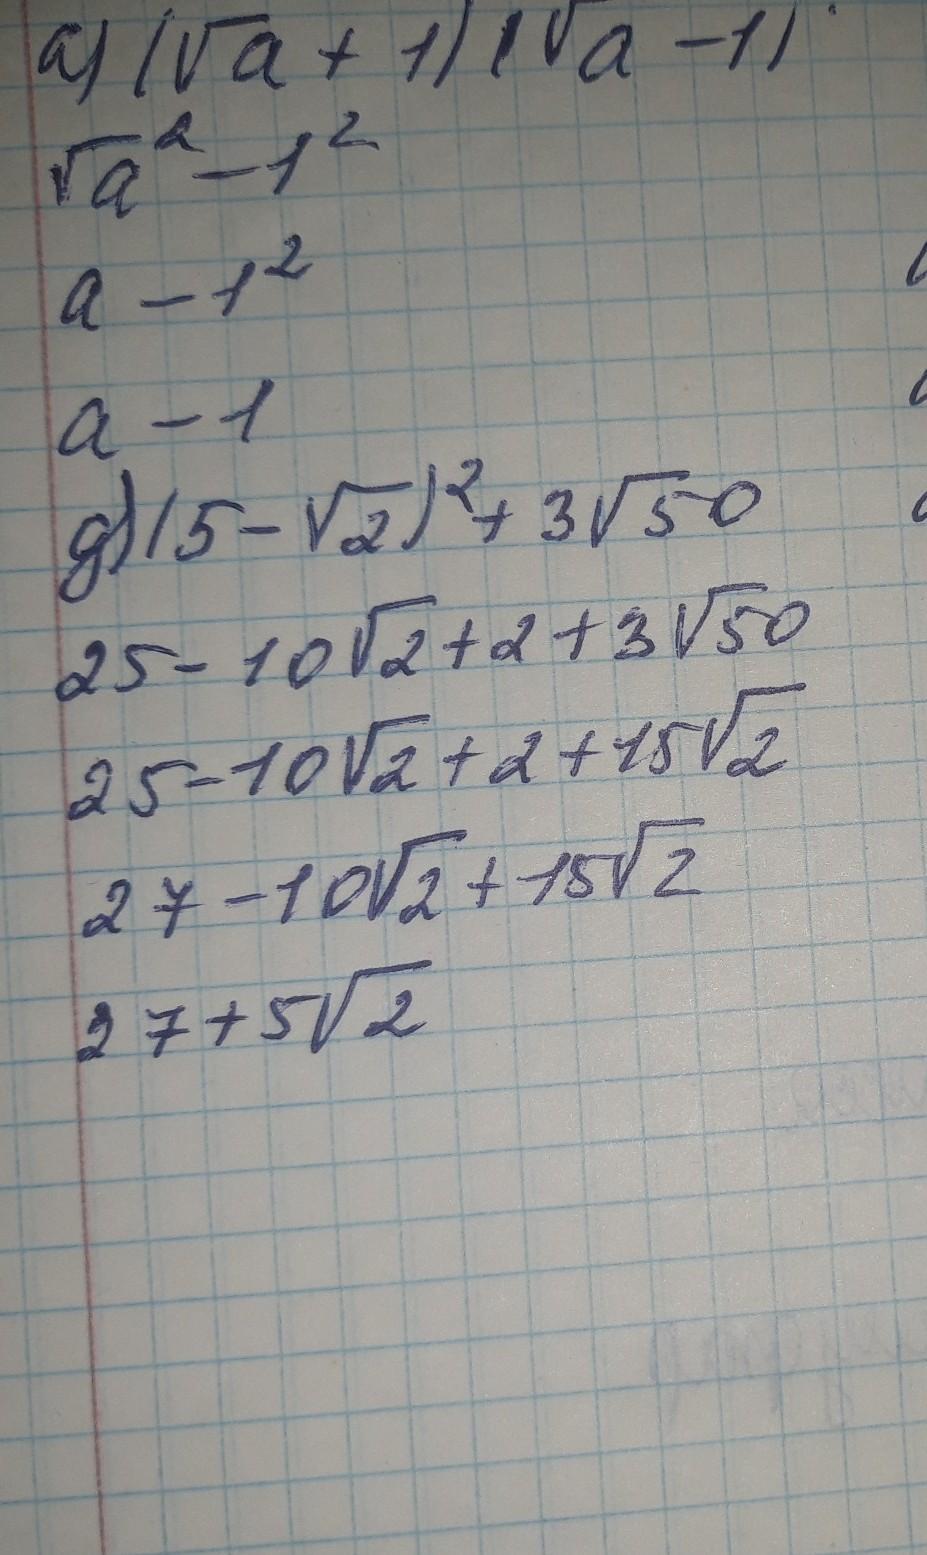 а) (√a + 1) (√a - 1)
√a² - 1²
a - 1²
a - 1
д) (5 - √2)² + 3√50
25 - 10√2 + 2 + 3√50
25 - 10√2 + 2 + 15√2
27 - 10√2 + 15√2
27 + 5√2